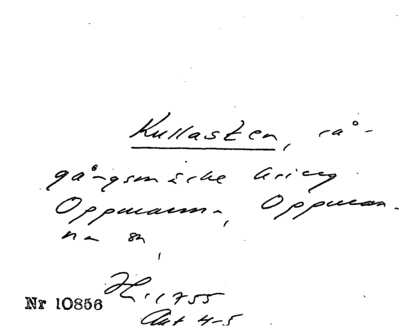 Kullasten, rå-
gångsmärke kring
Oppmanna, Oppman-
na sn,
1755
Akt 4-5
Nr 10856